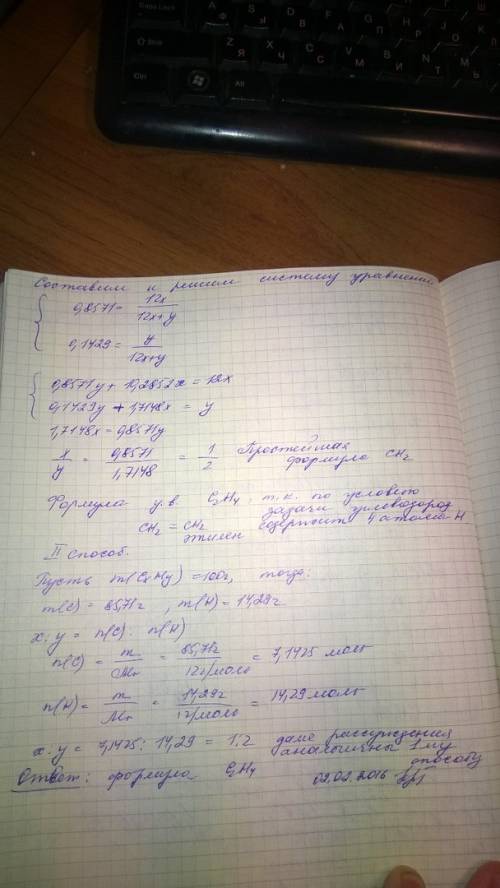 Составим и решим систему уравнений
0,8571 = 12x / 12x+y
0,1429 = y / 12x+y
0,8571y + 10,2852x = 12x
0,1429y + 1,7148x = y
1,7148x = 0,8571y
x/y = 0,8571/1,7148 = 1/2 Простейшая формула CH2
Формула у.в. C2H4, т.к. по условию задачи углеводород содержит 4 атома H
CH2 = CH2
этилен
II способ.
Пусть m(CxHy) = 100г, тогда:
m(C) = 85,71г, m(H) = 14,29г
x:y = n(C):n(H)
n(C) = m/Mr = 85,71г / 12г/моль = 7,1425 моль
n(H) = m/Mr = 14,29г / 1г/моль = 14,29 моль
x:y = 7,1425:14,29 = 1:2 далее рассуждения аналогичны 1му способу
Ответ: формула C2H4 02.02.2016